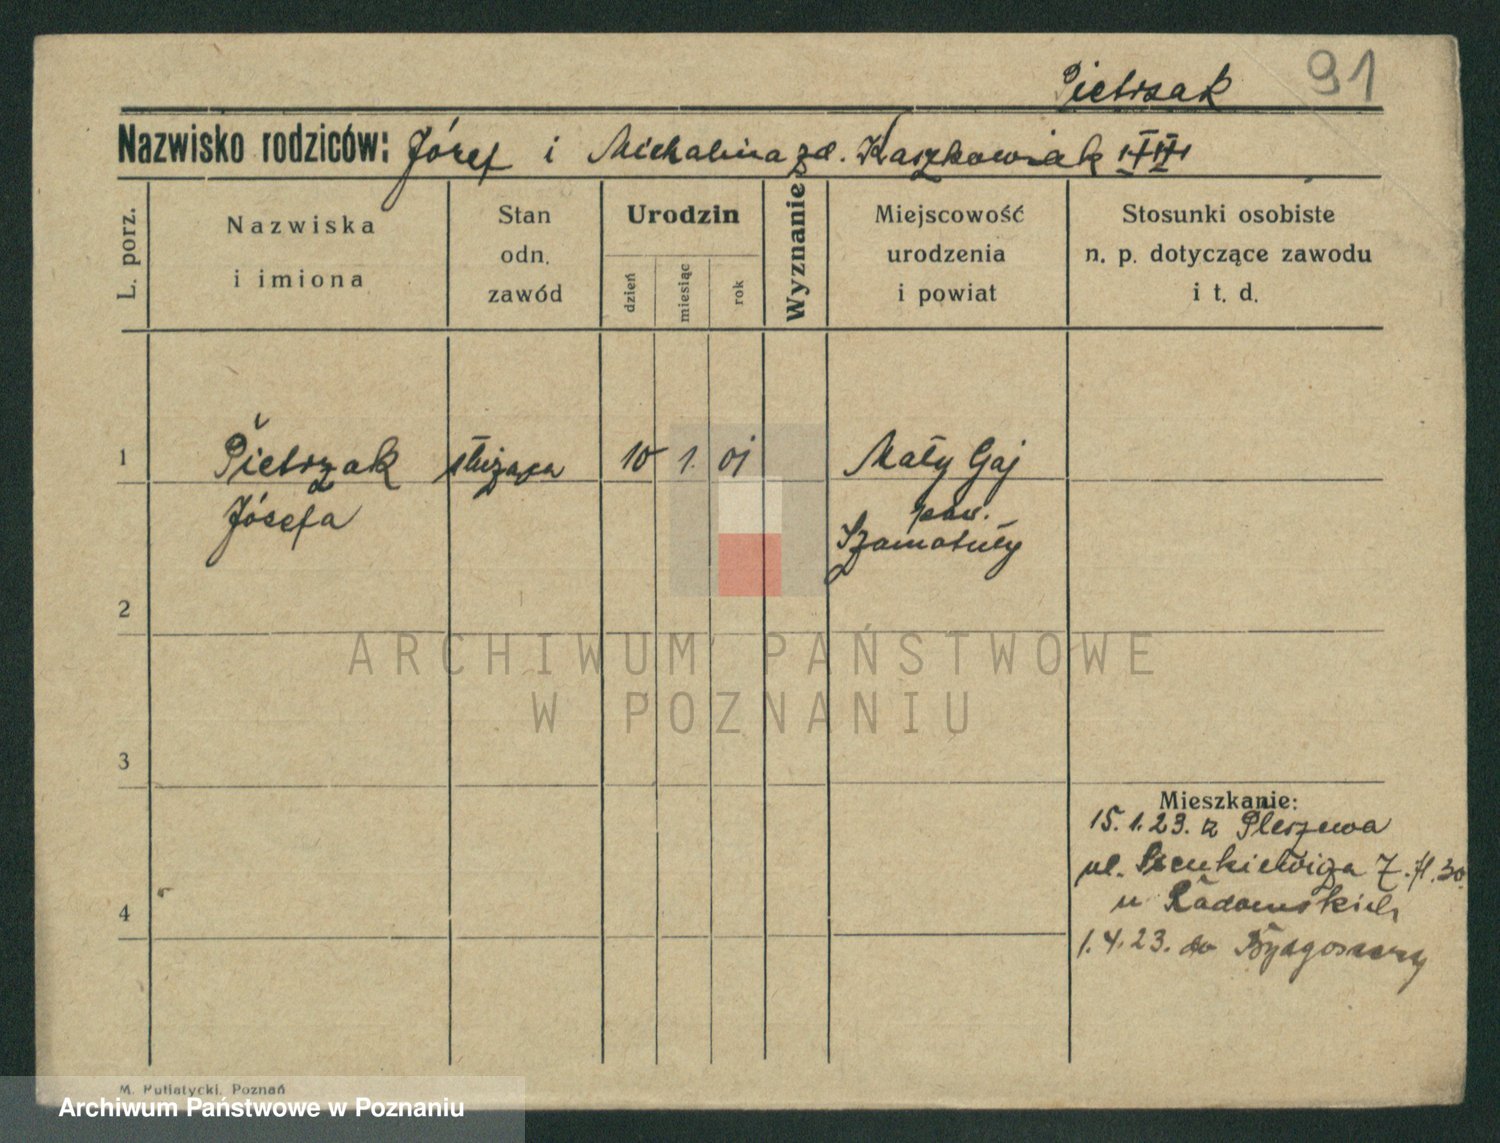 Pietrzak 91
Nazwisko rodziców: Józef i Michalina zd. Kaszkowiak
L. porz.
Nazwiska
i imiona
Stan
odn.
zawód
Urodzin
dzień
miesiąc
rok
Wyznanie
Miejscowość
urodzenia
i powiat
Stosunki osobiste
n. p. dotyczące zawodu
i t. d.
1 Pietrzak służąca 10 1. 01 Mały Gaj
Józefa pow.
Szamotuły
2
3
4
Mieszkanie:
15.1.23. z Pleszewa
ul. Sienkiewicza 7. 30
u Radomskich
1.4.23. do Bydgoszczy
ARCHIWUM PAŃSTWOWE
W POZNANIU
M. Putiatycki, Poznań
Archiwum Państwowe w Poznaniu